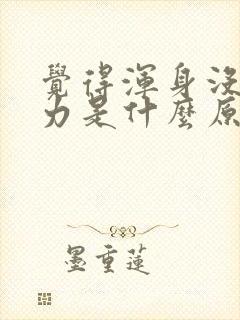 覺得渾身沒
力是什麼原
墨重蓮